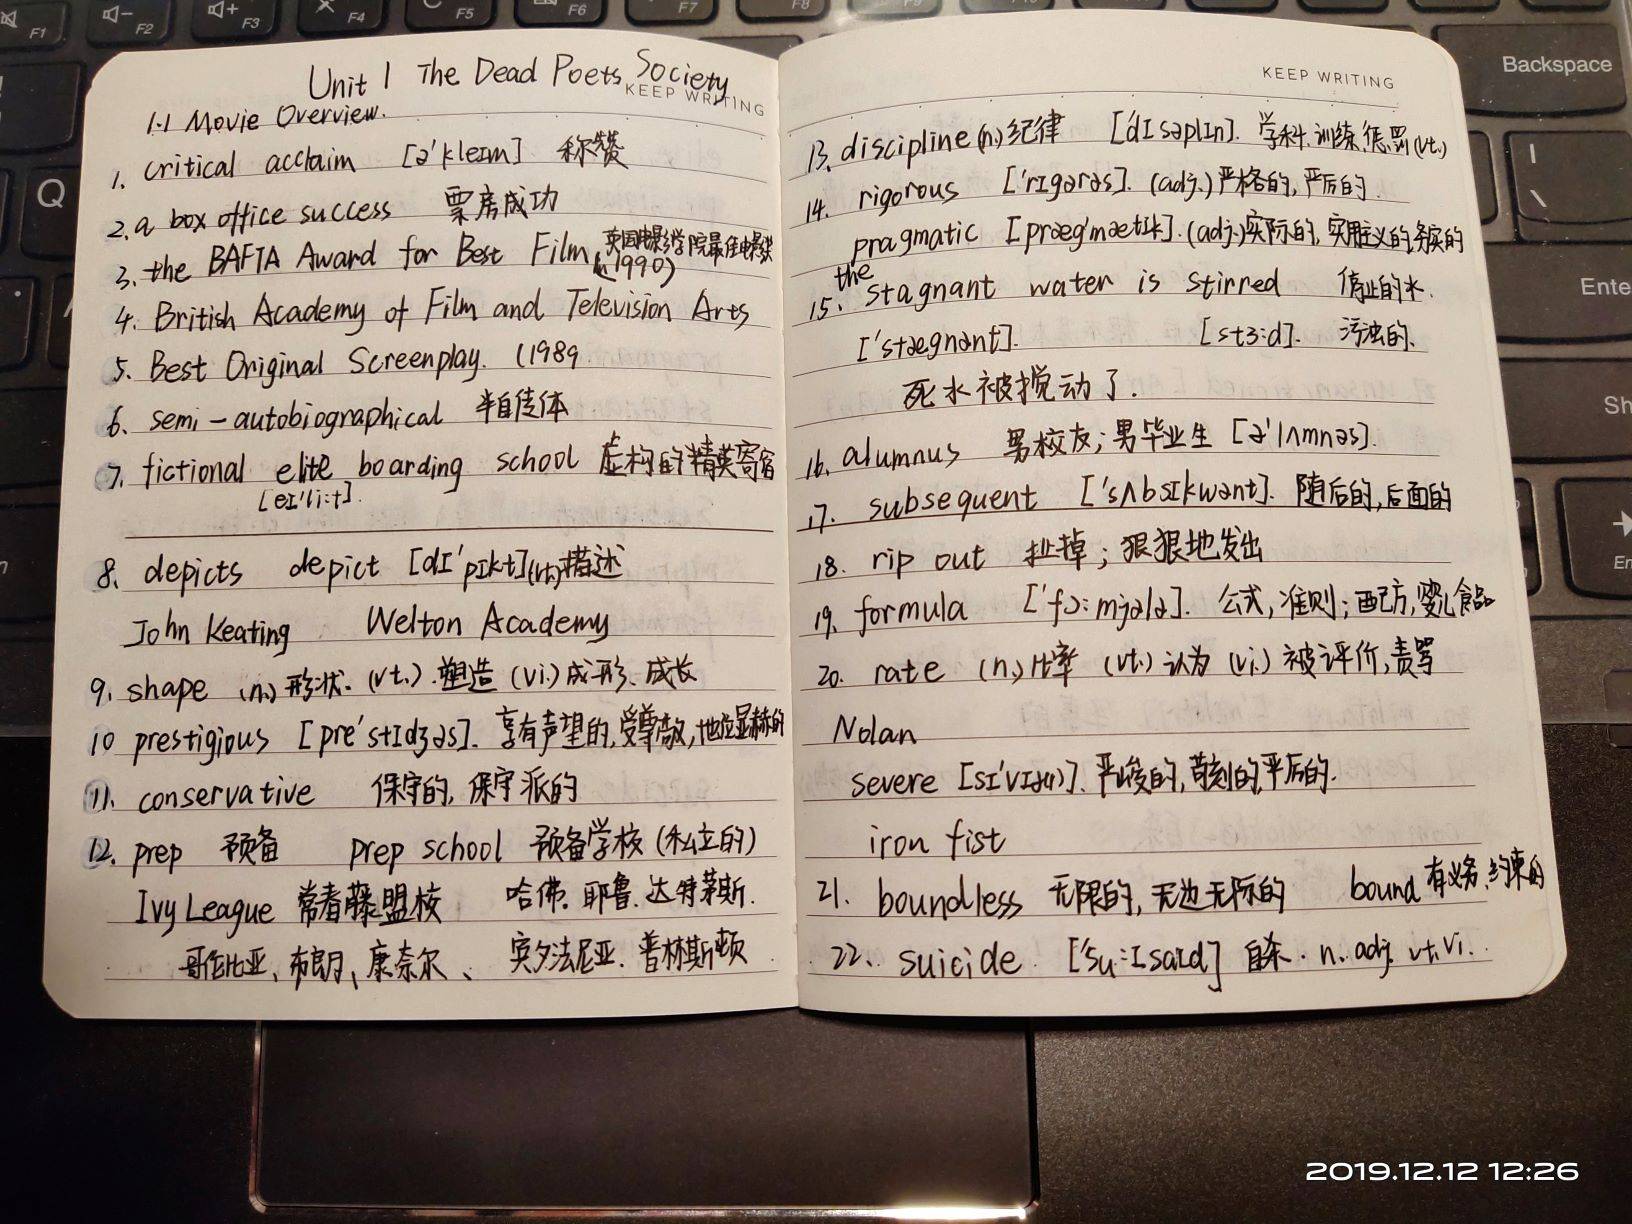 Unit 1 The Dead Poets Society
KEEP WRITING
1.1 Movie Overview.
1. critical acclaim [ə'kleɪm] 称赞
2. a box office success 票房成功
3. the BAFTA Award for Best Film 英国电影学院最佳电影奖
(in 1990)
4. British Academy of Film and Television Arts
5. Best Original Screenplay. (1989
6. semi-autobiographical 半自传体
7. fictional elite boarding school 虚构的精英寄宿
[eɪ'li:t].
8. depicts depict [dɪ'pɪkt](vt.)描述
John Keating Welton Academy
9. shape (n.) 形状. (vt.) 塑造 (vi.) 成形、成长
10 prestigious [pre'stɪdʒəs]. 享有声望的,受尊敬,地位显赫的
11. conservative 保守的, 保守派的
12. prep 预备 prep school 预备学校 (私立的)
Ivy League 常春藤盟校 哈佛. 耶鲁. 达特茅斯.
哥伦比亚、布朗、康奈尔、 宾夕法尼亚. 普林斯顿
KEEP WRITING
13. discipline (n.) 纪律 ['dɪsəplɪn]. 学科.训练,惩罚(vt.)
14. rigorous ['rɪgərəs]. (adj.) 严格的,严厉的.
pragmatic [præg'mætɪk]. (adj.)实际的,实用主义的,务实的
15. the stagnant water is stirred 停止的水.
['stægnənt]. [stɜ:d]. 污浊的.
死水被搅动了.
16. alumnus 男校友;男毕业生 [ə'lʌmnəs].
17. subsequent ['sʌbsɪkwənt]. 随后的,后面的
18. rip out 扯掉;狠狠地发出
19. formula ['fɔ:mjələ]. 公式,准则;配方,婴儿食品
20. rate (n.)比率 (vt.) 认为 (vi.) 被评价,责骂
Nolan
severe [sɪ'vɪə(r)]. 严峻的,苛刻的,严厉的.
iron fist
21. boundless 无限的,无边无际的 bound 有义务、约束的
22. suicide ['su:ɪsaɪd] 自杀. n. adj. vt. vi.
Backspace
Q
F1
F2
F3
F4
F5
F6
F7
F8
2019.12.12 12:26